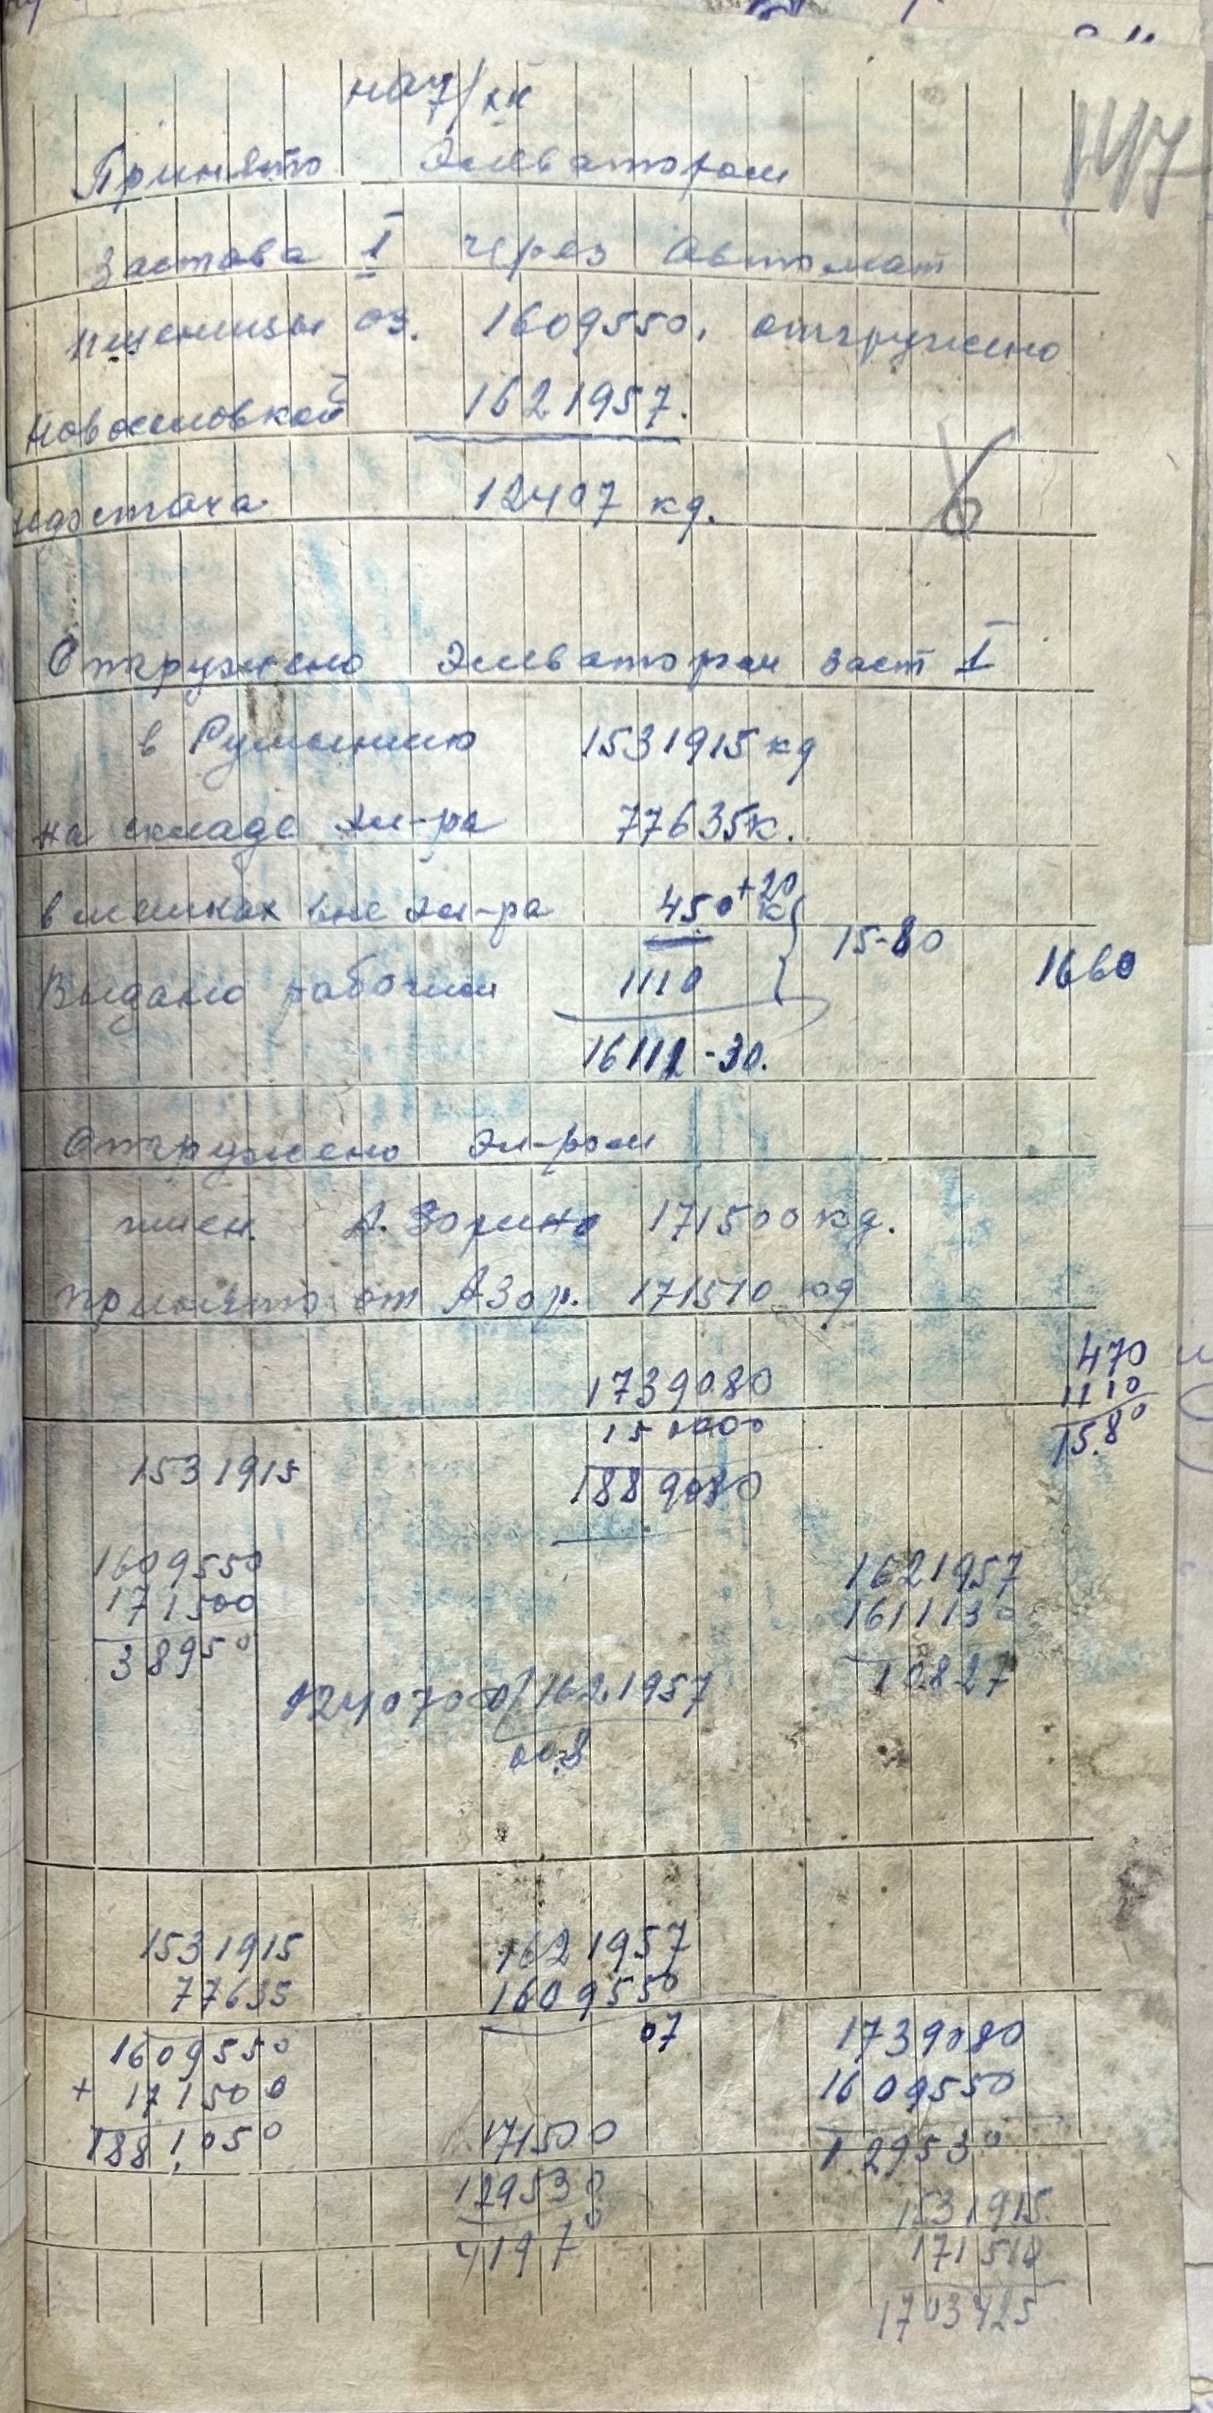 Принято Элеватором
Застава I через автомат
пшеницы оз. 1609550, отгружено
Новоселовкой 1621957.
недостача 12407 кг.
Отгружено Элеватором Заст I
в Румынию 1531915 кг
на складе эл-ра 77635 к.
в мешках вне эл-ра 450 +20 к
15-80
1660
Выдано рабочим 1110
16111-30.
Отгружено Эл-ром
пшен. А. Зорино 171500 кг.
принято от А Зор. 171510 кг
1739080
150000
1889080
470
1110
15.80
1531915
1609550
171500
38950
1621957
1611130
10827
1240700 1621957
00.8
1531915
77635
1609550
+ 171500
1881.050
1621957
1609550
07
1739080
1609550
129530
171500
129530
4197
1531915
171510
1703425